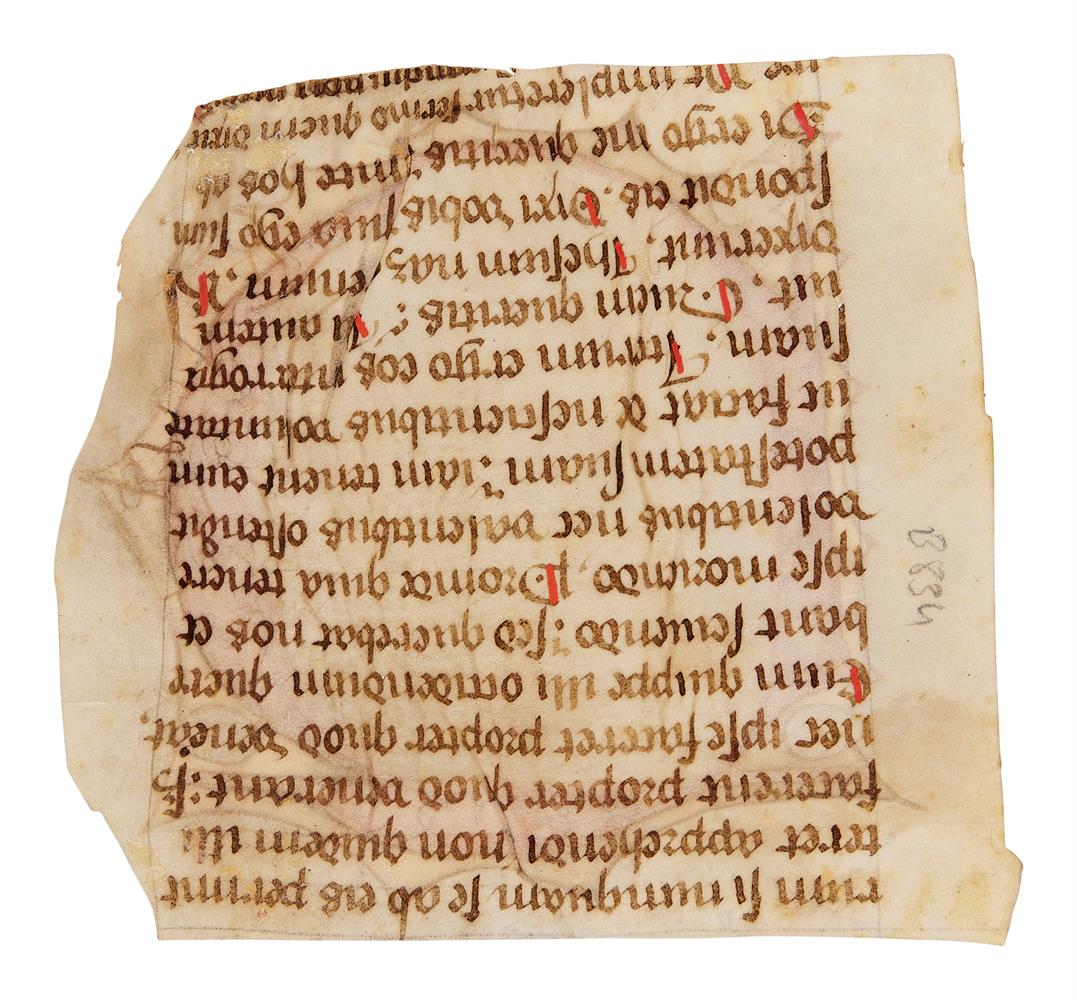 rum si nunquam se ab eis permit
teret apprehendi non quidem illi
facerent propter quod venerant: sꝫ
nec ipse faceret propter quod venerat.
Cum quippe illi occidendum quere
bant seviendo: sed querebat nos et
ipse moriendo. Proinde quia tenere
volentibus nec valentibus ostendit
potestatem suam: iam tenent eum
ut faciat & nescientibus voluntatē
suam. Iterum ergo eos interroga
vit. Quem queritis: Illi autem
dixerunt. Ihesum nazarenum. R
spondit eis. Dixi vobis quia ego sum.
Si ergo me queritis sinite hos ab
ire Ut impleretur sermo quem dixit
B 8834